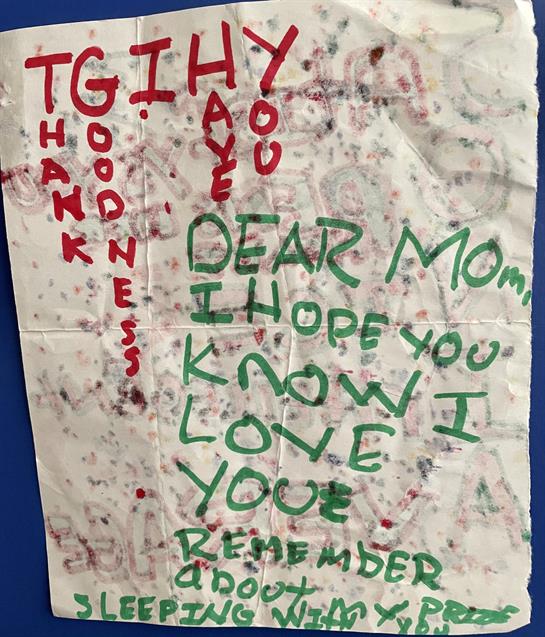 THANK
GOODNESS
I
HAVE
YOU
DEAR MOM,
I HOPE YOU
KNOW I
LOVE
YOU
REMEMBER
about
SLEEPING WITH PRIZE
you